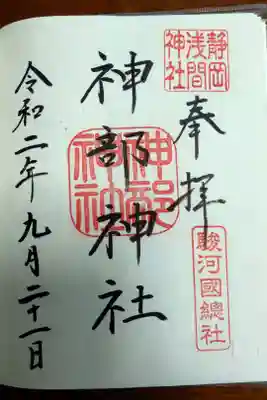 静岡
浅間
神社
奉拝
駿河國總社
神部神社
神部
神社
令和二年九月二十一日